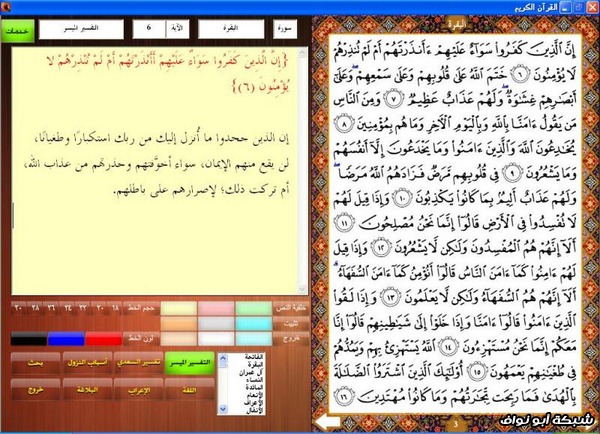 القرآن الكريم
سورة
البقرة
الآية
6
التفسير الميسر
خدمات
{إِنَّ الَّذِينَ كَفَرُوا سَوَاءٌ عَلَيْهِمْ أَأَنْذَرْتَهُمْ أَمْ لَمْ تُنْذِرْهُمْ لَا
يُؤْمِنُونَ (٦)}
إن الذين جحدوا ما أُنزل إليك من ربك استكبارا وطغيانًا،
لن يقع منهم الإيمان، سواء أخوَّفتهم وحذرتهم من عذاب الله،
أم تركت ذلك؛ لإصرارهم على باطلهم.
خلفية النص
حجم الخط
١٨
٢٠
٢٢
٢٤
٢٦
٢٨
٣٠
تثبيت
خروج
لون الخط
الفاتحة
البقرة
آل عمران
النساء
المائدة
الأنعام
الأعراف
الأنفال
التفسير الميسر
تفسير السعدي
أسباب النزول
بحث
اللغة
الإعراب
البلاغة
خروج
البقرة
إِنَّ ٱلَّذِينَ كَفَرُوا۟ سَوَآءٌ عَلَيْهِمْ ءَأَنذَرْتَهُمْ أَمْ لَمْ تُنذِرْهُمْ
لَا يُؤْمِنُونَ ٦ خَتَمَ ٱللَّهُ عَلَىٰ قُلُوبِهِمْ وَعَلَىٰ سَمْعِهِمْ ۖ وَعَلَىٰٓ
أَبْصَـٰرِهِمْ غِشَـٰوَةٌ ۖ وَلَهُمْ عَذَابٌ عَظِيمٌ ٧ وَمِنَ ٱلنَّاسِ
مَن يَقُولُ ءَامَنَّا بِٱللَّهِ وَبِٱلْيَوْمِ ٱلْـَٔاخِرِ وَمَا هُم بِمُؤْمِنِينَ ٨
يُخَـٰدِعُونَ ٱللَّهَ وَٱلَّذِينَ ءَامَنُوا۟ وَمَا يَخْدَعُونَ إِلَّآ أَنفُسَهُمْ
وَمَا يَشْعُرُونَ ٩ فِى قُلُوبِهِم مَّرَضٌ فَزَادَهُمُ ٱللَّهُ مَرَضًا ۖ
وَلَهُمْ عَذَابٌ أَلِيمٌۢ بِمَا كَانُوا۟ يَكْذِبُونَ ١٠ وَإِذَا قِيلَ لَهُمْ
لَا تُفْسِدُوا۟ فِى ٱلْأَرْضِ قَالُوٓا۟ إِنَّمَا نَحْنُ مُصْلِحُونَ ١١
أَلَآ إِنَّهُمْ هُمُ ٱلْمُفْسِدُونَ وَلَـٰكِن لَّا يَشْعُرُونَ ١٢ وَإِذَا قِيلَ
لَهُمْ ءَامِنُوا۟ كَمَآ ءَامَنَ ٱلنَّاسُ قَالُوٓا۟ أَنُؤْمِنُ كَمَآ ءَامَنَ ٱلسُّفَهَآءُ ۗ
أَلَآ إِنَّهُمْ هُمُ ٱلسُّفَهَآءُ وَلَـٰكِن لَّا يَعْلَمُونَ ١٣ وَإِذَا لَقُوا۟
ٱلَّذِينَ ءَامَنُوا۟ قَالُوٓا۟ ءَامَنَّا وَإِذَا خَلَوْا۟ إِلَىٰ شَيَـٰطِينِهِمْ قَالُوٓا۟ إِنَّا
مَعَكُمْ إِنَّمَا نَحْنُ مُسْتَهْزِءُونَ ١٤ ٱللَّهُ يَسْتَهْزِئُ بِهِمْ وَيَمُدُّهُمْ
فِى طُغْيَـٰنِهِمْ يَعْمَهُونَ ١٥ أُو۟لَـٰٓئِكَ ٱلَّذِينَ ٱشْتَرَوُا۟ ٱلضَّلَـٰلَةَ
بِٱلْهُدَىٰ فَمَا رَبِحَت تِّجَـٰرَتُهُمْ وَمَا كَانُوا۟ مُهْتَدِينَ ١٦
3
شبكة أبو نواف